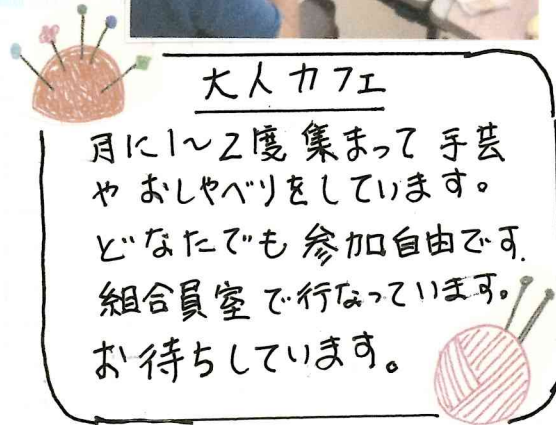 大人カフェ
月に1〜2度 集まって 手芸
や おしゃべりをしています。
どなたでも 参加自由です.
組合員室で行なっています。
お待ちしています。